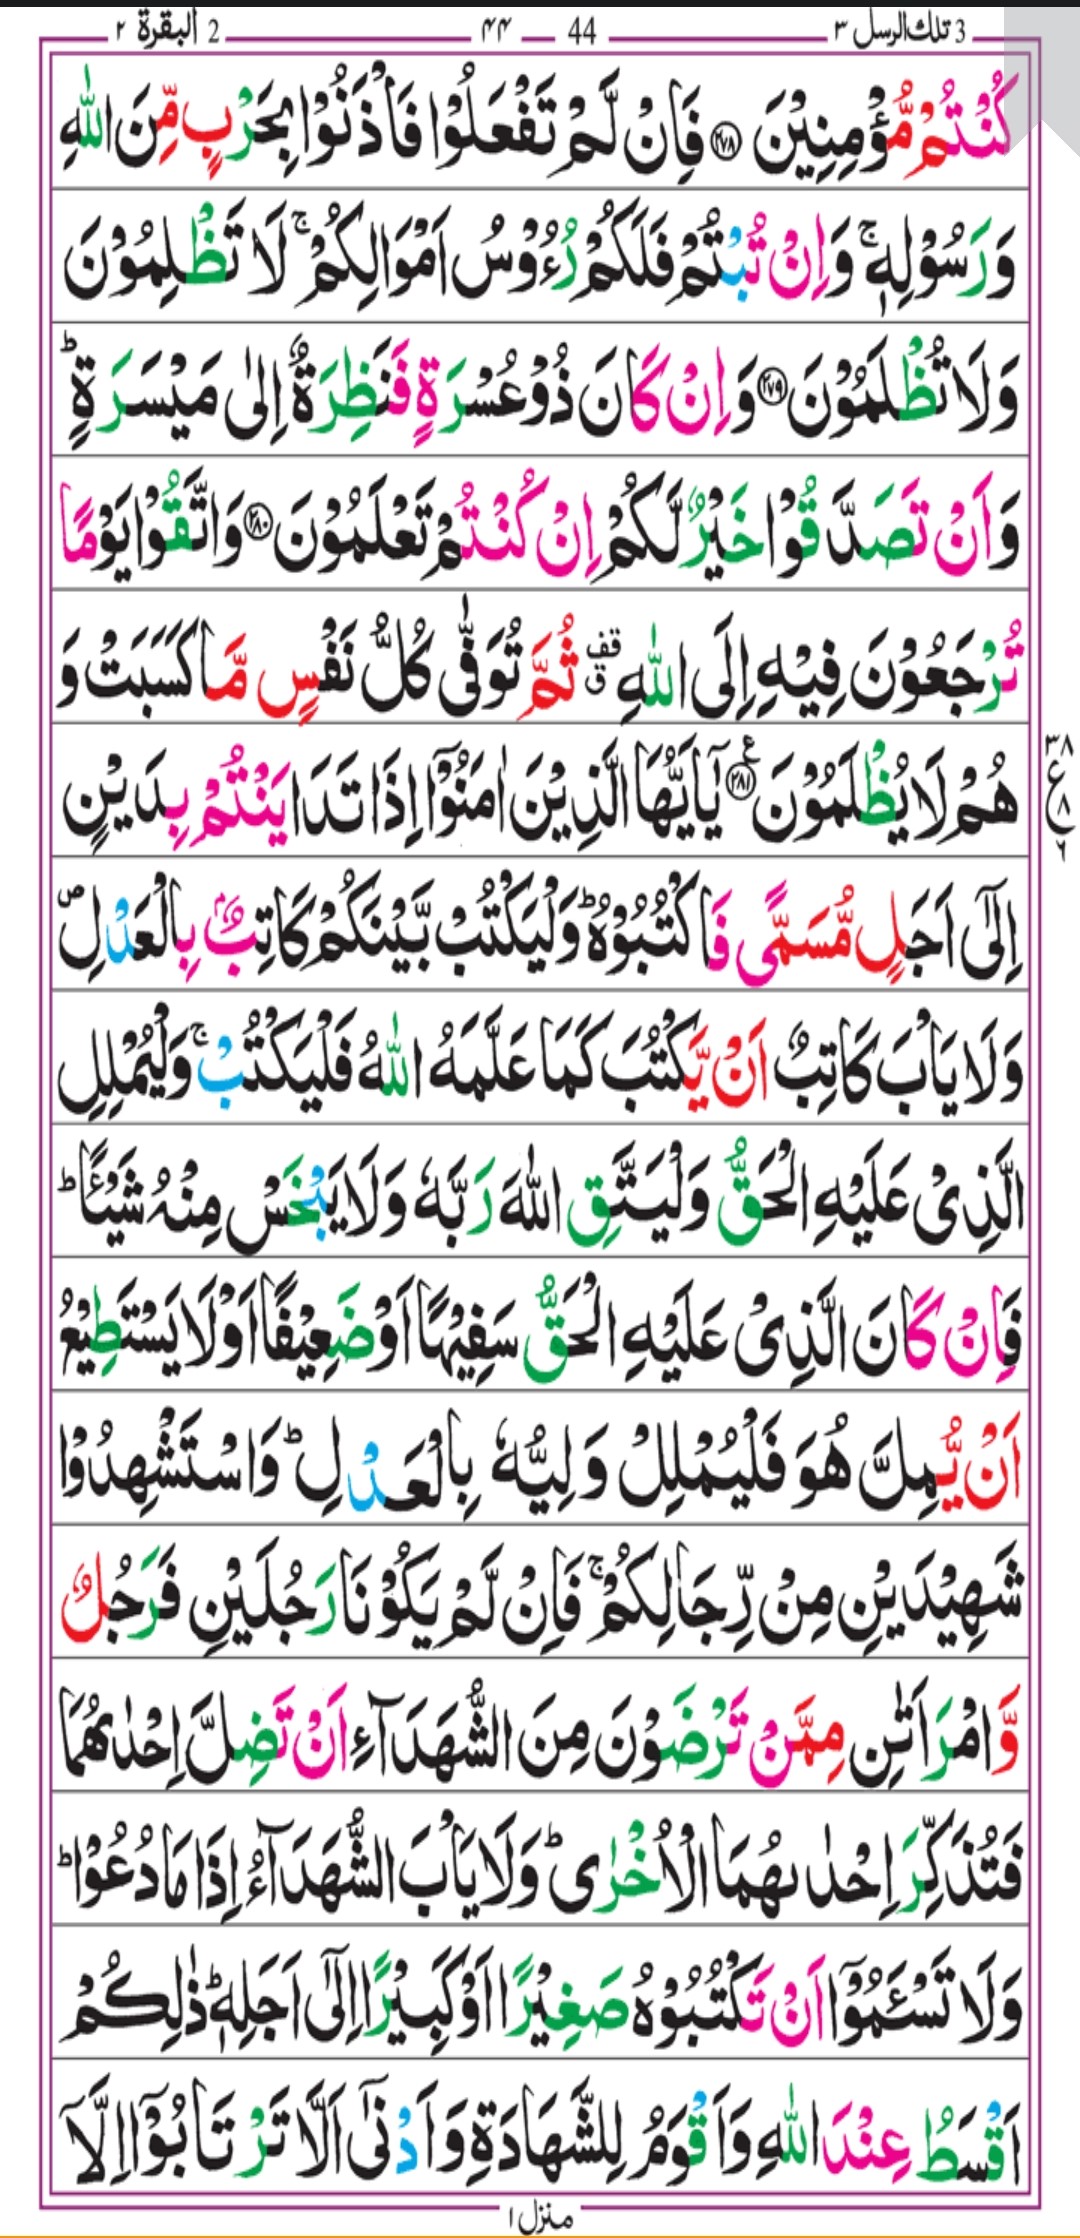 3 تلك الرسل ٣ 44 ـــ ۴۴ 2 البقرة ٢
كُنْتُمْ مُّؤْمِنِيْنَ ﴿۲۷۸﴾ فَاِنْ لَّمْ تَفْعَلُوْا فَاْذَنُوْا بِحَرْبٍ مِّنَ اللّٰهِ
وَرَسُوْلِهٖ ۚ وَاِنْ تُبْتُمْ فَلَكُمْ رُءُوْسُ اَمْوَالِكُمْ ۚ لَا تَظْلِمُوْنَ
وَلَا تُظْلَمُوْنَ ﴿۲۷۹﴾ وَاِنْ كَانَ ذُوْ عُسْرَةٍ فَنَظِرَةٌ اِلٰى مَيْسَرَةٍ ؕ
وَاَنْ تَصَدَّقُوْا خَيْرٌ لَّكُمْ اِنْ كُنْتُمْ تَعْلَمُوْنَ ﴿۲۸۰﴾ وَاتَّقُوْا يَوْمًا
تُرْجَعُوْنَ فِيْهِ اِلَى اللّٰهِ قف ق ثُمَّ تُوَفّٰى كُلُّ نَفْسٍ مَّا كَسَبَتْ وَ
هُمْ لَا يُظْلَمُوْنَ ﴿۲۸۱﴾ ع يٰۤاَيُّهَا الَّذِيْنَ اٰمَنُوْۤا اِذَا تَدَايَنْتُمْ بِدَيْنٍ
۳۸ ع ۸ ۶
اِلٰۤى اَجَلٍ مُّسَمًّى فَاكْتُبُوْهُ ؕ وَلْيَكْتُبْ بَّيْنَكُمْ كَاتِبٌۢ بِالْعَدْلِ ۪
وَلَا يَاْبَ كَاتِبٌ اَنْ يَّكْتُبَ كَمَا عَلَّمَهُ اللّٰهُ فَلْيَكْتُبْ ۚ وَلْيُمْلِلِ
الَّذِيْ عَلَيْهِ الْحَقُّ وَلْيَتَّقِ اللّٰهَ رَبَّهٗ وَلَا يَبْخَسْ مِنْهُ شَيْـًٔا ؕ
فَاِنْ كَانَ الَّذِيْ عَلَيْهِ الْحَقُّ سَفِيْهًا اَوْ ضَعِيْفًا اَوْ لَا يَسْتَطِيْعُ
اَنْ يُّمِلَّ هُوَ فَلْيُمْلِلْ وَلِيُّهٗ بِالْعَدْلِ ؕ وَاسْتَشْهِدُوْا
شَهِيْدَيْنِ مِنْ رِّجَالِكُمْ ۚ فَاِنْ لَّمْ يَكُوْنَا رَجُلَيْنِ فَرَجُلٌ
وَّامْرَاَتٰنِ مِمَّنْ تَرْضَوْنَ مِنَ الشُّهَدَآءِ اَنْ تَضِلَّ اِحْدٰىهُمَا
فَتُذَكِّرَ اِحْدٰىهُمَا الْاُخْرٰى ؕ وَلَا يَاْبَ الشُّهَدَآءُ اِذَا مَا دُعُوْا ؕ
وَلَا تَسْـَٔمُوْۤا اَنْ تَكْتُبُوْهُ صَغِيْرًا اَوْ كَبِيْرًا اِلٰۤى اَجَلِهٖ ؕ ذٰلِكُمْ
اَقْسَطُ عِنْدَ اللّٰهِ وَاَقْوَمُ لِلشَّهَادَةِ وَاَدْنٰۤى اَلَّا تَرْتَابُوْۤا اِلَّاۤ
منزل ۱